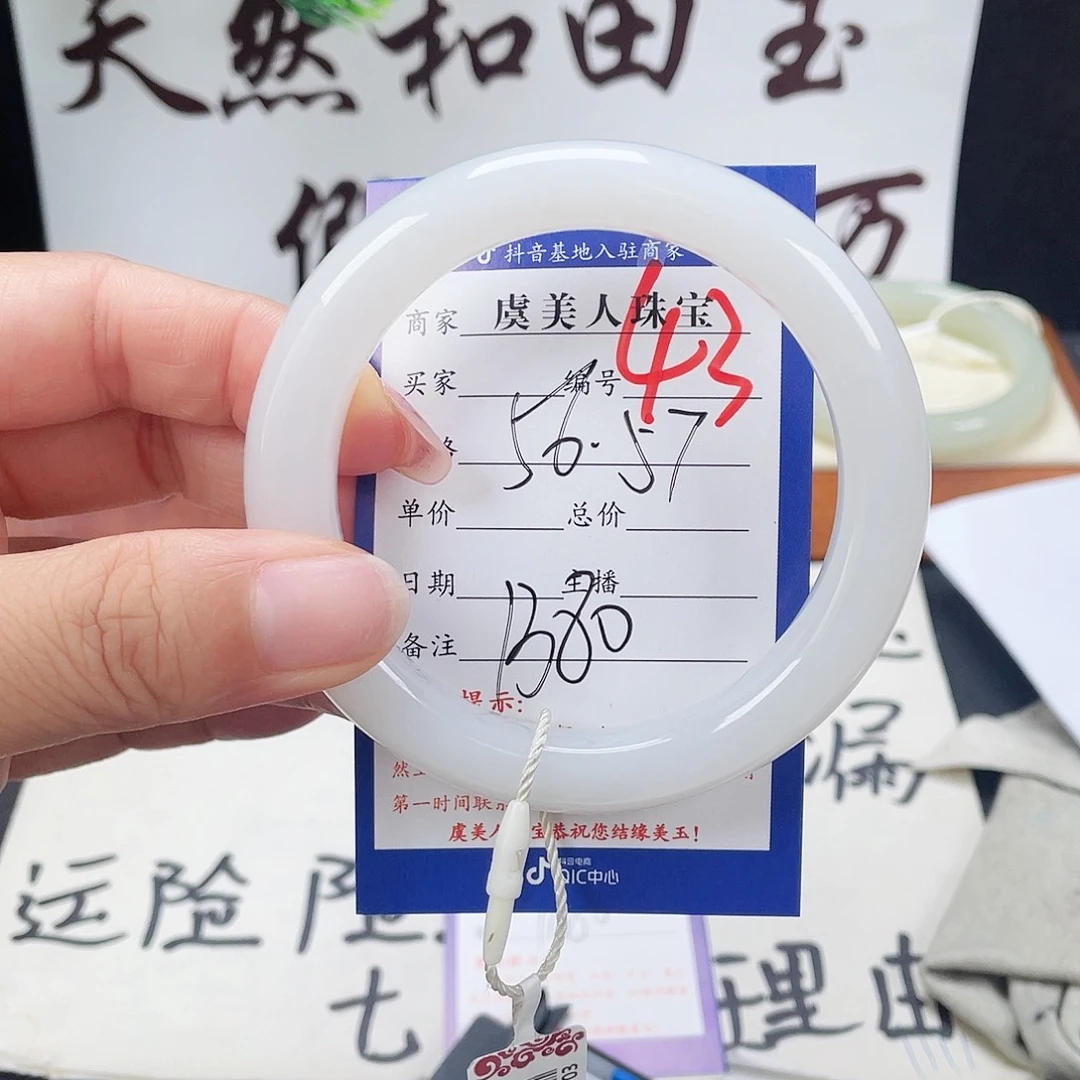 天然和田玉
万
抖音基地入驻商家
商家 虞美人珠宝
买家 编号 43
56.57
单价 总价
日期 主播
备注 1380
提示:
然
第一时间联系
虞美人 宝恭祝您结缘美玉!
抖音电商
QIC中心
漏
运险
七 理由